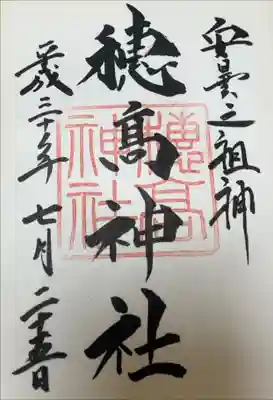 安曇之祖神
穂髙神社
平成三十年 七月 二十五日
穂高
神社